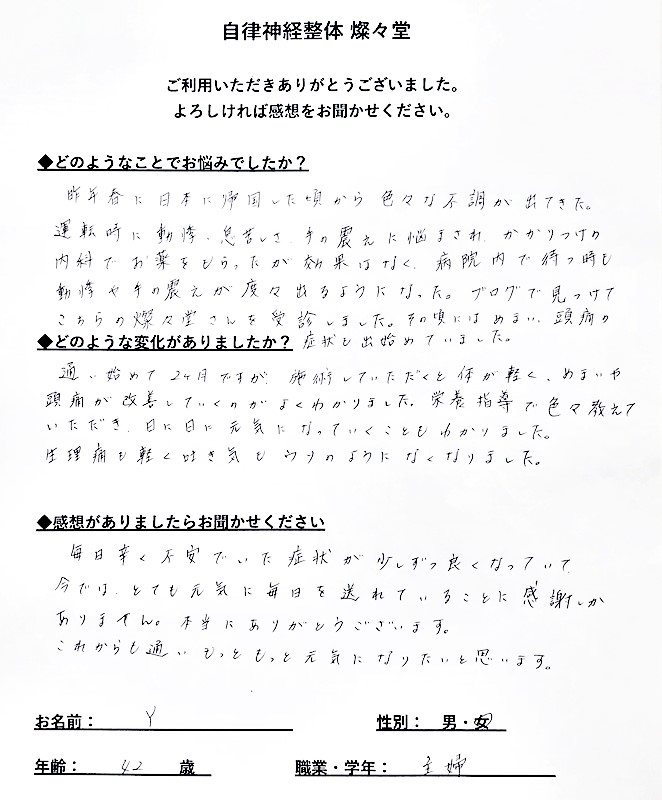 自律神経整体 燦々堂
ご利用いただきありがとうございました。
よろしければ感想をお聞かせください。
◆どのようなことでお悩みでしたか？
昨年春に日本に帰国した頃から色々な不調が出てきた。
運転時に動悸、息苦しさ、手の震えに悩まされ、かかりつけの
内科でお薬をもらったが効果はなく、病院内で待つ時も
動悸や手の震えが度々出るようになった。ブログで見つけて
こちらの燦々堂さんを受診しました。その頃にはめまい、頭痛の
◆どのような変化がありましたか？ 症状も出始めていました。
通い始めて2ヶ月ですが、施術していただくと体が軽く、めまいや
頭痛が改善していくのがよくわかりました。栄養指導で色々教えて
いただき、日に日に元気になっていくこともわかりました。
生理痛も軽く吐き気もウソのようになくなりました。
◆感想がありましたらお聞かせください
毎日辛く不安でいた症状が少しずつ良くなっていて、
今では、とても元気に毎日を送れていることに感謝しか
ありません。本当にありがとうございます。
これからも通い もっともっと元気になりたいと思います。
お名前： Y 性別： 男・女
年齢： 42 歳 職業・学年： 主婦